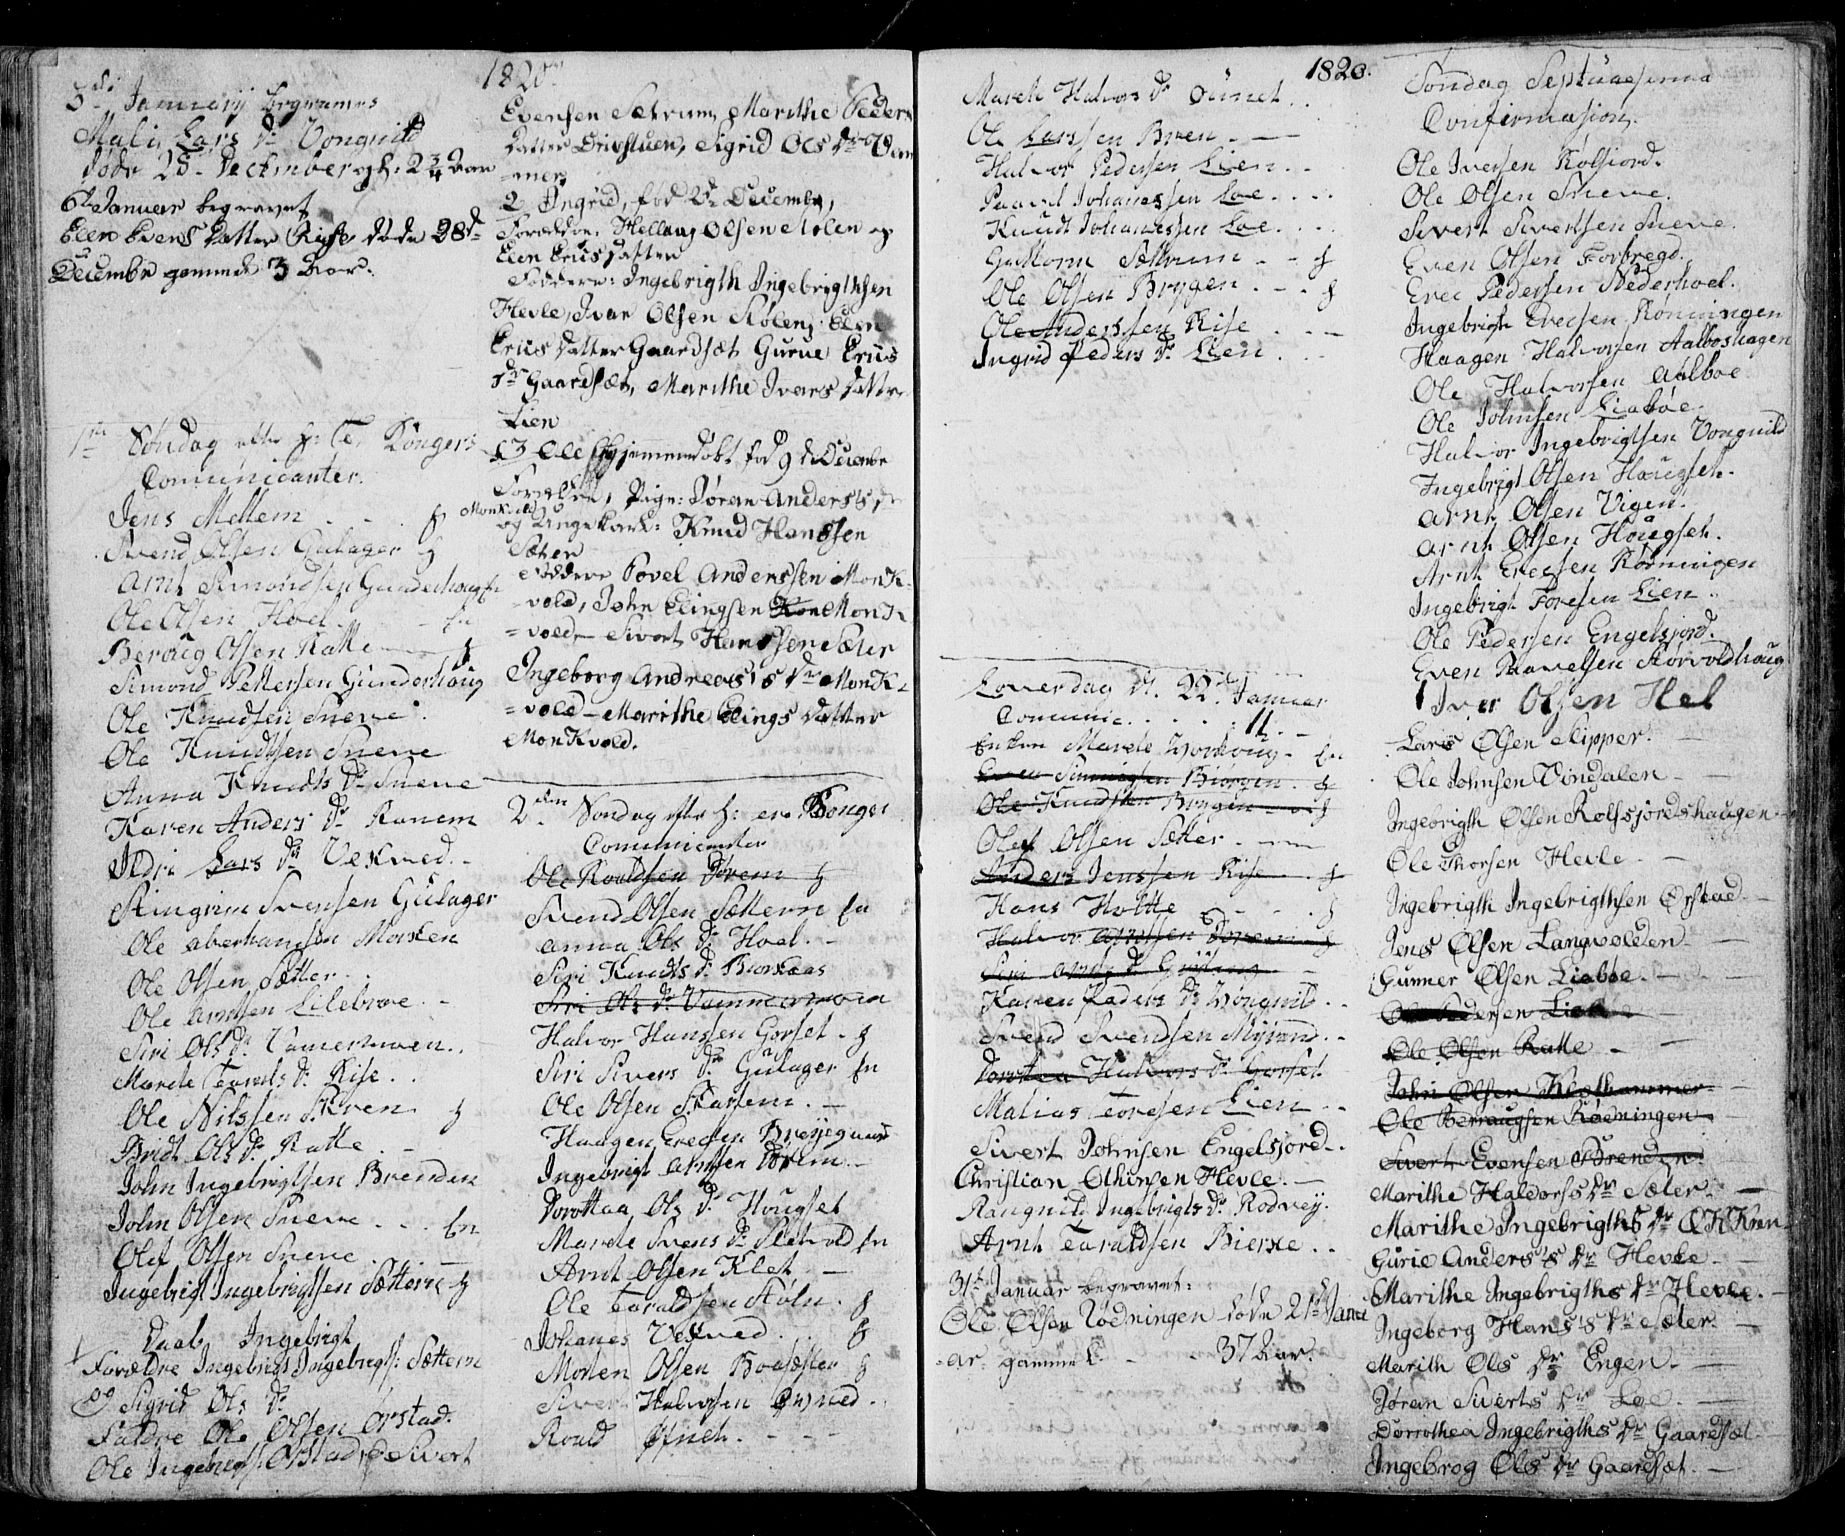 1820
5te Januarij begravnes
Mali Lars Dr Vongvild
døde 25 December gh: 2 3/4 Aar
6te Januar begravet
Elen Evens Datter Rise døde 28de
Decembr gammel 3 Aar.
1ste Søndag efter h: Tre Konger
Comunicanter.
Jens Mellem
Svend Olsen Gulager
Arnt Simondsen Gunderhoug
Ole Olsen Hoel
Beroug Olsen Ratte
Simond Pettersen Gunderhoug
Ole Knudsen Sneve
Ole Knudtsen Sneve
Anna Knudts Dr Sneve
Karen Anders Dr Ranem
Ildri Lars Dr Vekved
Stingrim Svensen Gulager
Ole Olsen Sætter
Ole Arntsen Lilebroe
Siri Ols Dr
Marete Taralds Dr Rise
Ole Nilssen Skren
Bridt Ols Dr Ratte
John Ingebrigtsen Brenden
John Olsen Sneve
Olef Olsen Sneve
Ingebrigt Ingebrigtsen Sætterne
Daab Ingebrigt
Forældre Ingebrigt Ingebrigts: Sætterne
og Sigrid Ols Dr
Faddre Ole Olsen Ørstad
Ole Ingebrigts: Ørstad, Sivert
Evensen Sætrum, Marithe Peders
Datter Drivstuen, Sigrid Ols Dr
2 Ingrid, fød Decembr,
Forældre: Hellaug Olsen Stølen og
Elen Erics Datter
Faddere: Ingebrigth Ingebrigthsen
Hevle, Ivar Olsen Stølen, Elen
Erics Datter Gaardsæt, Gurue Erics
Dr Gaardsæt, Marithe Ivers Datter
Lien
3 Ole Hjemmedøbt fød 9 d Decembr
Forældre, Pige: Jøran Anders's Dr
Monkvold
og Ungekarl: Knud Hanssen
Sæter
Faddere Povel Anderssen Monk-
=vold, John Elingsen Monk
=vold Sivert Hanssen Sæter
Ingeborg Andreas's Dr Monk-
=vold - Marithe Elings Datter
Monkvold.
2den Søndag efter h: tre Konger
Comunicanter
Ole Roaldsen Dorem
Svend Olsen Sætterne
Anna Ols Dr Hoel
Siri Knudts Dr Biørkaas
Siri Ols Dr
Halvor Hanssen Gorset
Siri Sivers Dr Gulager
Ole Olsen Skarsem
Haagen Erecsen
Ingebrigt Arntsen Dorem
Dorottaa Ols Dr Hougset
Marete Svens Dr Sletvold
Arnt Olsen Klet
Ole Taraldsen Støln
Johanes Vekved
Morten Olsen Boasæter
Siver Halvorsen
Roald Øfneh
1820.
Marete Halvors Dr
Ole Larssen Bren
Halvor Pedersen Lien
Paavel Johanessen Loe
Knudt Johanessen Loe
Guttorm Sætterum
Ole Olsen Bryggen
Ole Anderssen Rise
Ingrid Peders Dr Lien
Løverdag d. 22de Januar
Comunic. 11
Enken Marete
Even Biørgen
Ole Knudtsen Bryggen
Olef Olsen Sætter
Anders Jenssen Rise
Hans Holtte
Halvor Arntsen Dorem
Siri Arnts Dr
Karen Peders Dr Vongvild
Svend Svendsen
Dorottea Halvors Dr Gorset
Matias Toresen Lien
Sivert Johnsen Engelsjord
Christian Othinsen Hevle
Raugnild Ingebrigts Dr Rodvey
Arnt Taraldsen Bierke
31te Januar begravet:
Ole Olsen Rødningen døde 21de Janu
=ar gammel 37 Aar.
Søndag Septuagesima
Confirmasion.
Ole Iversen Rolsiord.
Ole Olsen Sneve
Sivert Sivertsen Sneve.
Even Olsen Forbregd.
Erec Pedersen Nederhoel.
Ingebrigt Erecsen Rønningen
Haagen Halvorsen Aalboshagen
Ole Halvorsen Aalboe
Ole Johnsen Liabøe
Halvor Ingebrigtsen Vongvild
Ingebrigt Olsen Hougset
Arnt Olsen Vigen.
Arnt Olsen Hougset.
Arnt Erecsen Rødningen
Ingebrigt Foresen Lien
Ole Pedersen Engelsjord.
Even Paavelsen Storvoldhoug
Iver Olsen Hel
Lars Olsen Skipper.
Ole Johnsen Vindalen
Ingebrigth Olsen Rolfsjordshaugen
Ole Thorsen Hevle
Ingebrigth Ingebrigthsen Ørstad
Jens Olsen Langvolden
Gunner Olsen Liabøe
Ole Pedersen
Ole Olsen Ratte
John Olsen Klethammer
Ole Berraugsen Rødningen
Sivert Evensen Brenden
Marithe Haldors's Dr Sæter
Marithe Ingebrigths Dr
Gurie Anders's Dr Hevle
Marithe Ingebrigths Dr Hevle.
Ingeborg Hans's Dr Sæter
Marith Ols Dr Engen.
Jøran Siverts Dr Loe
Dorrothea Ingebrigths Dr Gaardsæt
Ingebrog Ols Dr Gaardsæt.